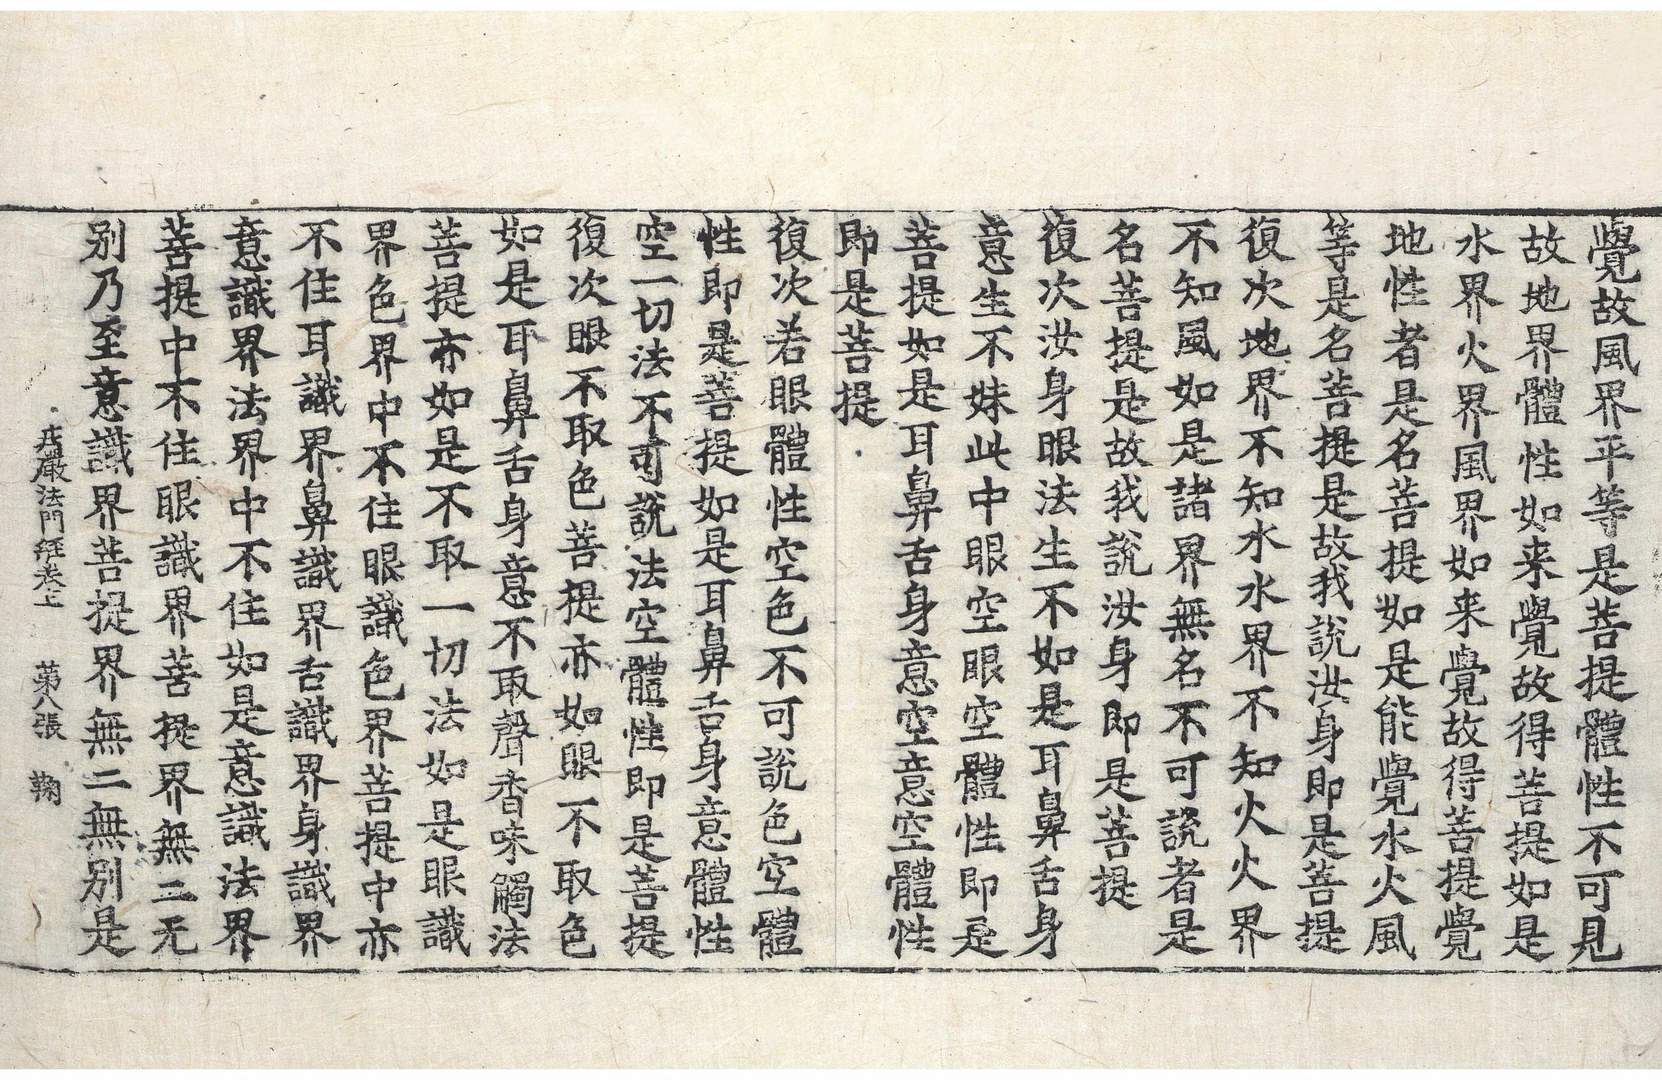 覺故風界平等是菩提體性不可見
故地界體性如来覺故得菩提如是
水界火界風界如来覺故得菩提覺
地性者是名菩提如是能覺水火風
等是名菩提是故我說汝身即是菩提
復次地界不知水水界不知火火界
不知風如是諸界無名不可說者是
名菩提是故我說汝身即是菩提
復次汝身眼法生不如是耳鼻舌身
意生不妹此中眼空眼空體性即是
菩提如是耳鼻舌身意空意空體性
即是菩提
復次若眼體性空色不可說色空體
性即是菩提如是耳鼻舌身意體性
空一切法不可說法空體性即是菩提
復次眼不取色菩提亦如眼不取色
如是耳鼻舌身意不取聲香味觸法
菩提亦如是不取一切法如是眼識
界色界中不住眼識色界菩提中亦
不住耳識界鼻識界舌識界身識界
意識界法界中不住如是意識法界
菩提中不住眼識界菩提界無二无
别乃至意識界菩提界無二無別是
嚴法門經卷上 第八張 鞠